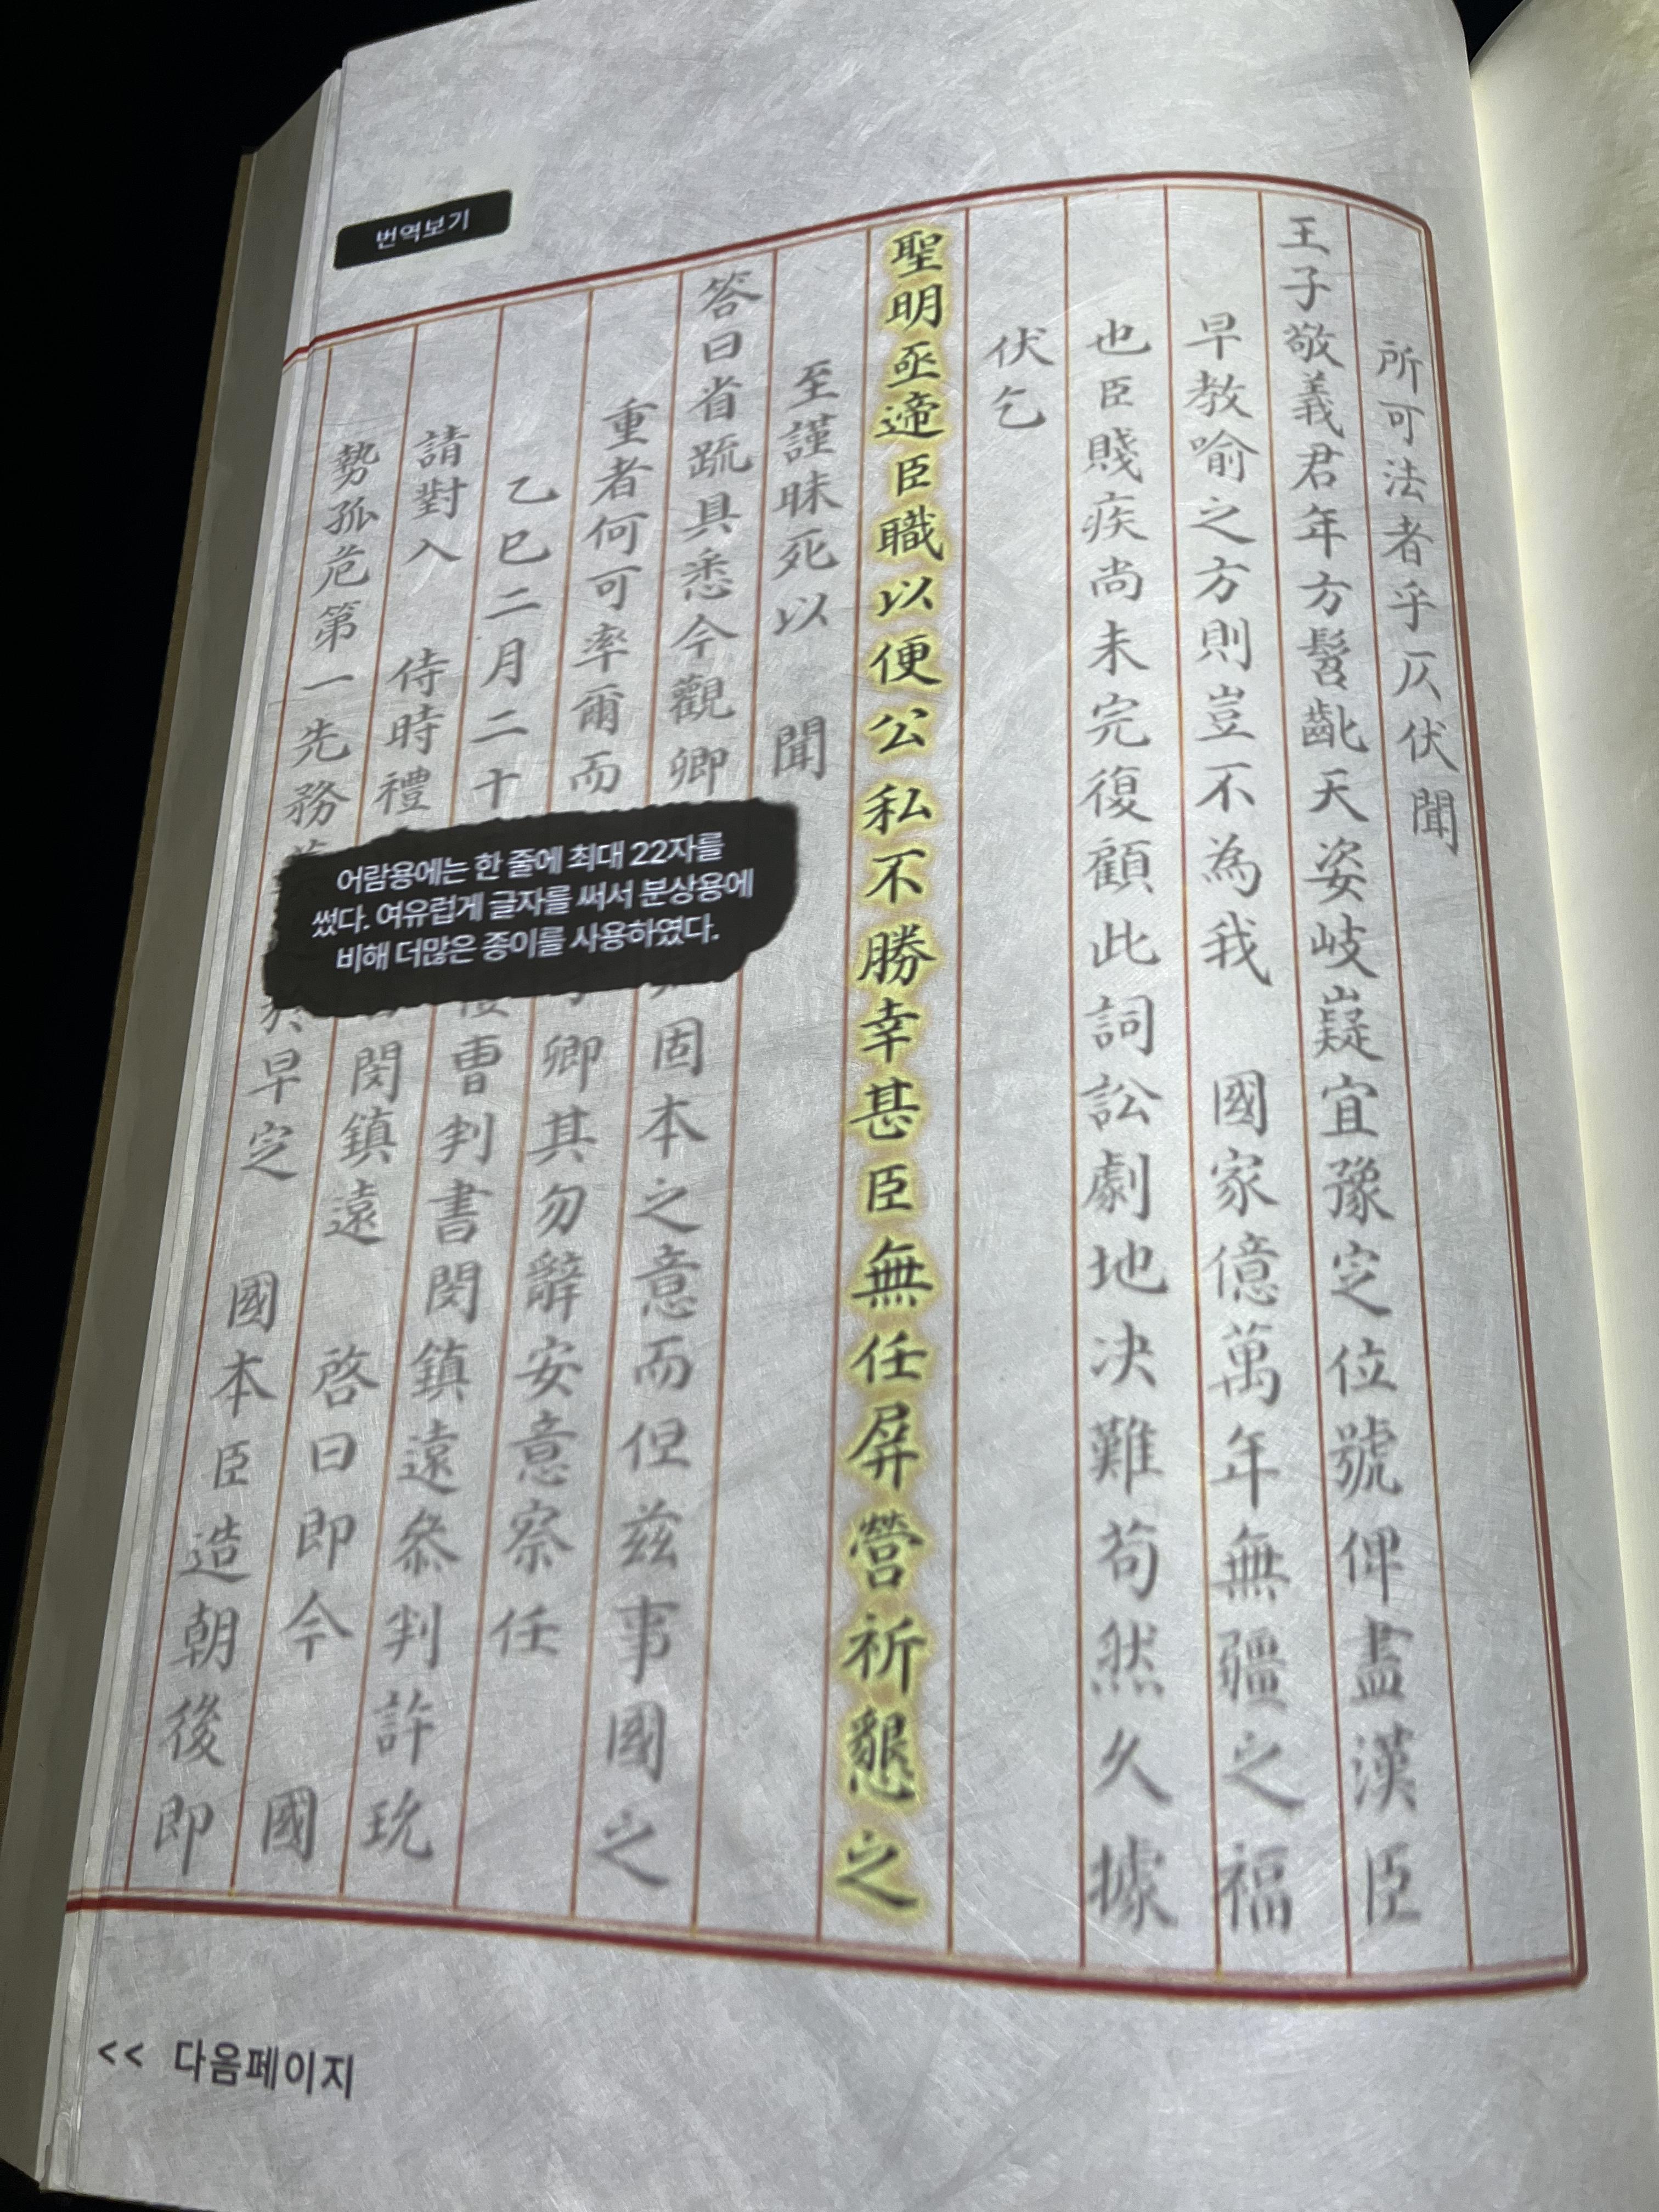 번역보기
所可法者乎仄伏聞
王子敬義君年方髫齔天姿岐嶷宜豫定位號俾盡漢臣
早教喻之方則豈不為我 國家億萬年無疆之福
也臣賤疾尚未完復顧此詞訟劇地决難苟然久據
伏乞
聖明亟遞臣職以便公私不勝幸甚臣無任屏營祈懇之
至謹昧死以 聞
答曰省疏具悉今觀卿
固本之意而但茲事國之
重者何可率爾而
卿其勿辭安意察任
乙巳二月二十
曹判書閔鎮遠叅判許玧
請對入 侍時禮
閔鎮遠 啓曰即今 國
勢孤危第一先務
早定 國本臣造朝後即
어람용에는 한 줄에 최대 22자를
썼다. 여유럽게 글자를 써서 분상용에
비해 더많은 종이를 사용하였다.
<< 다음페이지